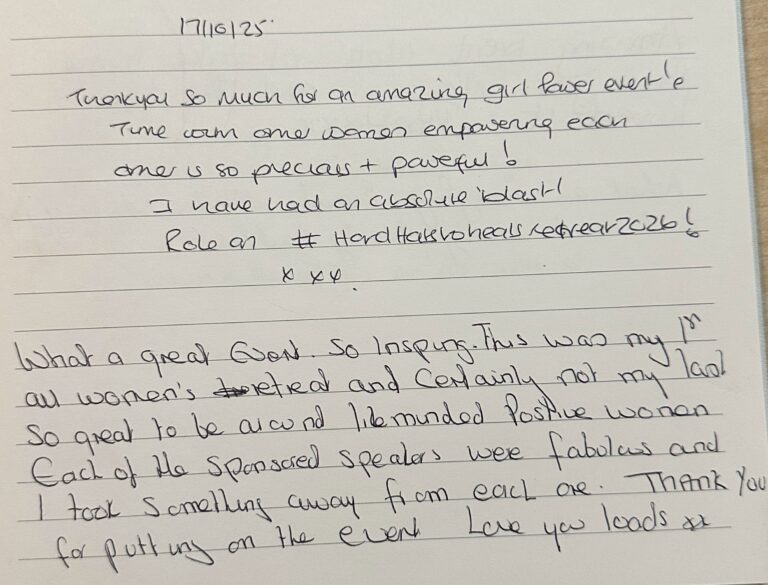 17/10/25
Thankyou so much for an amazing girl power event!
Time with other women empowering each
other is so precious + powerful!
I have had an absolute blast!
Role on #HardHatstoheelsretreat2026!
x x x.
What a great Event. So Inspiring. This was my 1st
all women's retreat and Certainly not my last
So great to be around likeminded Positive women
Each of the sponsored speakers were fabulous and
I took something away from each one. Thank You
for putting on the event Love you loads xx